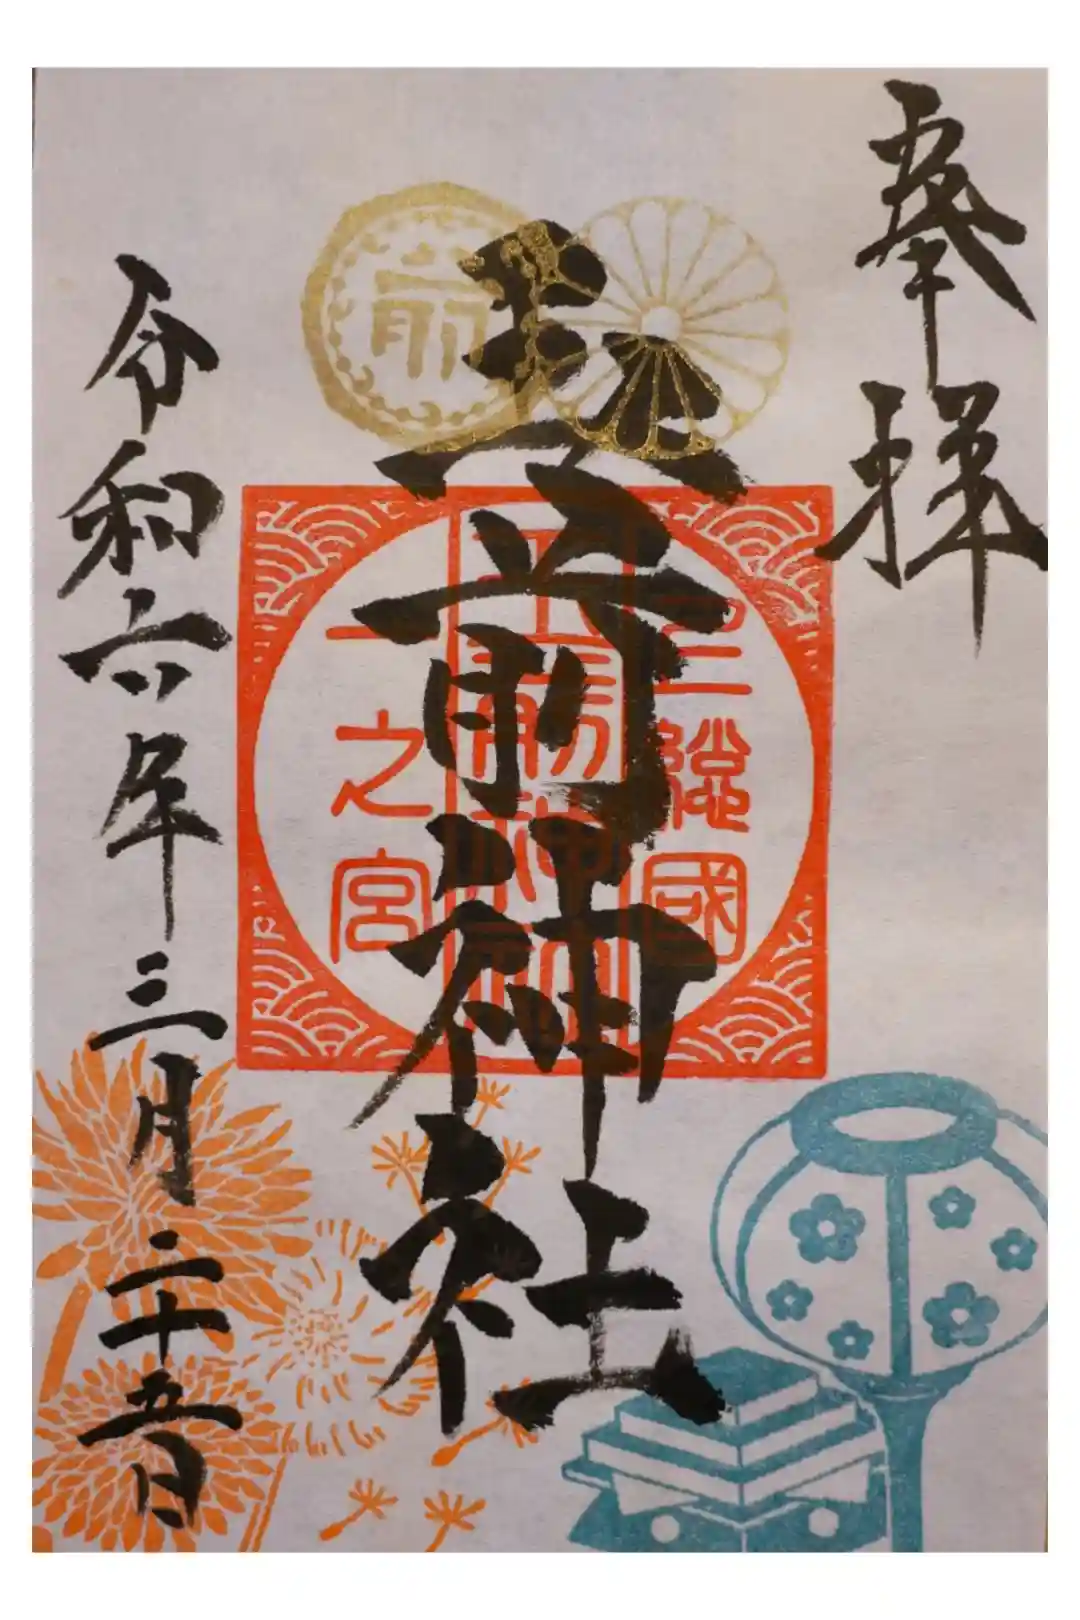 奉拝
上總國
玉前神社
一之宮
前
玉前神社
令和六年三月二十五日